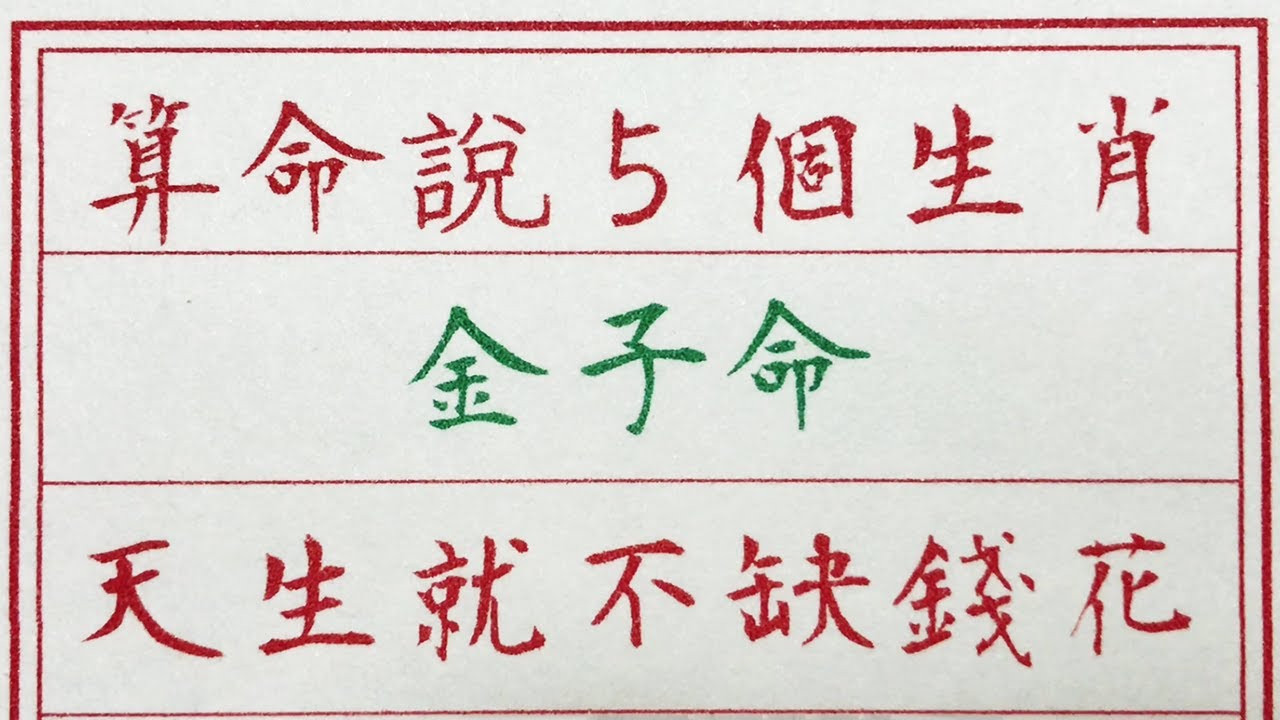 算命說5個生肖
金子命
天生就不缺錢花